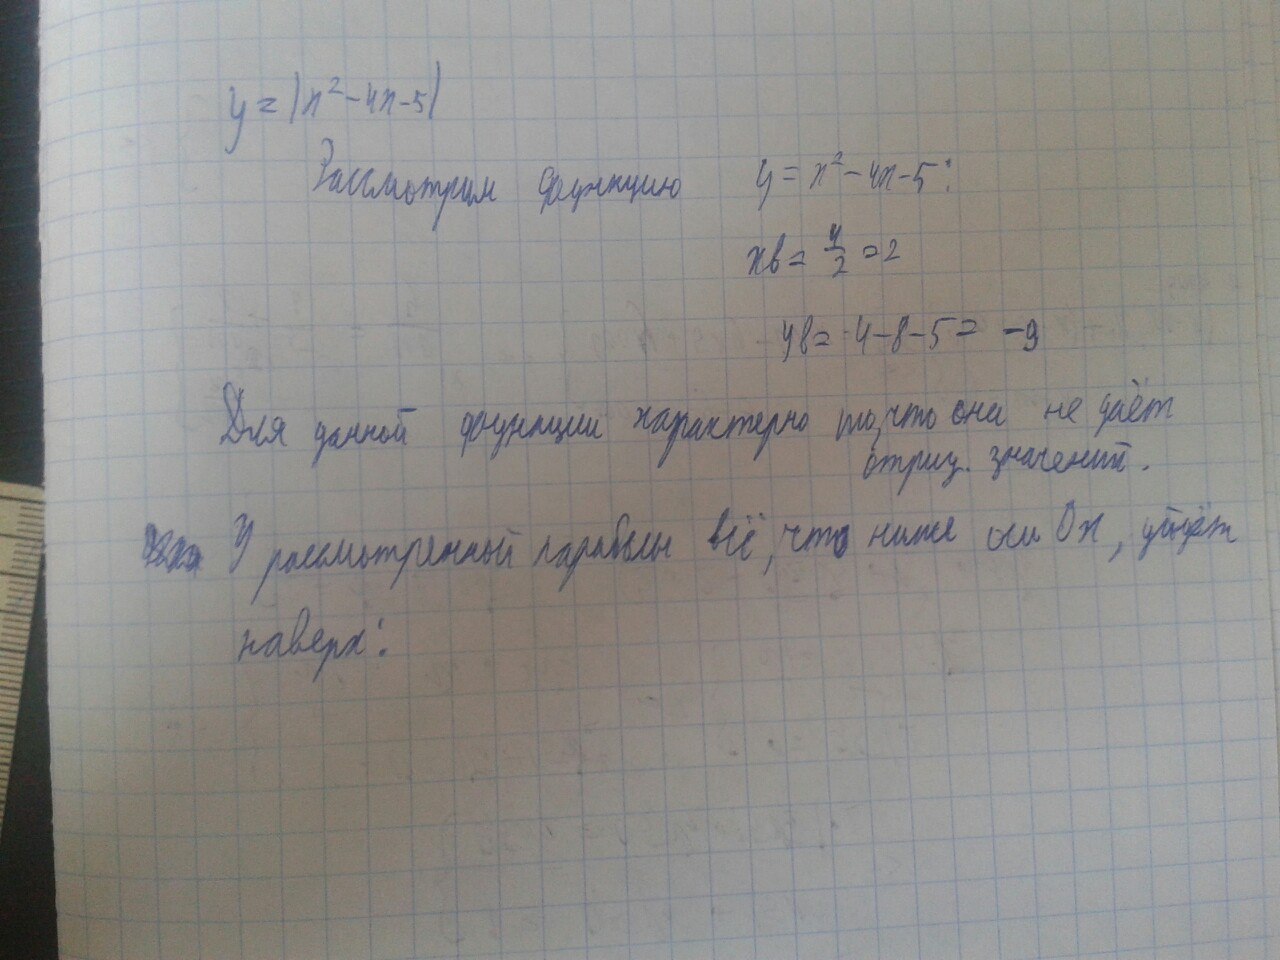 y = |x² - 4x - 5|
Рассмотрим функцию y = x² - 4x - 5:
xв = 4/2 = 2
yв = 4 - 8 - 5 = -9
Для данной функции характерно то, что она не даёт
отриц. значений.
У рассмотренной параболы всё, что ниже оси Ox, уйдёт
наверх: